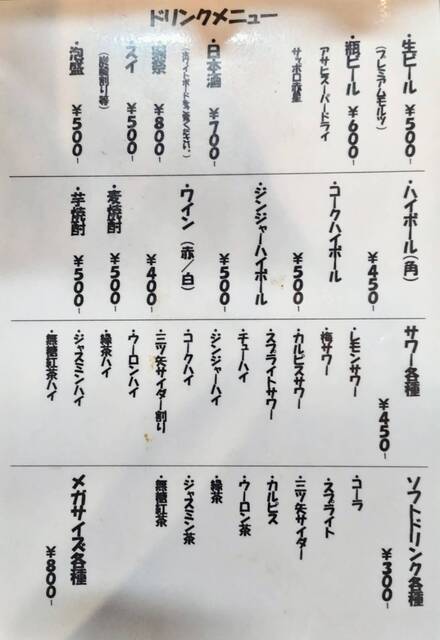 ドリンクメニュー
・生ビール ¥500-
(プレミアムモルツ)
・瓶ビール ¥600-
アサヒスーパードライ
サッポロ赤星
・日本酒 ¥700-
(ホワイトボードをご覧ください。)
¥800-
スイ ¥500-
(炭酸割り等)
・泡盛 ¥500-
・ハイボール(角)
¥450-
・コークハイボール
¥500-
・ジンジャーハイボール
¥500-
・ワイン(赤/白)
¥400-
・麦焼酎 ¥500-
・芋焼酎 ¥500-
サワー各種
¥450-
・レモンサワー
・梅サワー
・カルピスサワー
・スプライトサワー
・チューハイ
・ジンジャーハイ
・コークハイ
・三ツ矢サイダー割り
・ウーロンハイ
・緑茶ハイ
・ジャスミンハイ
・無糖紅茶ハイ
ソフトドリンク各種
¥300-
・コーラ
・スプライト
・三ツ矢サイダー
・カルピス
・ウーロン茶
・緑茶
・ジャスミン茶
・無糖紅茶
メガサイズ各種
¥800-